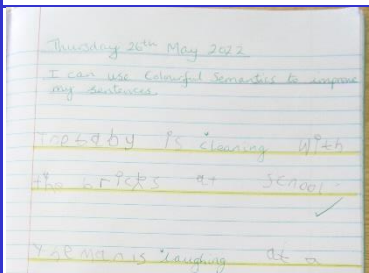 Thursday 26th May 2022
I can use Colourful Semantics to improve
my sentences.
is cleaning with
the bricks at school.
man is laughing at a